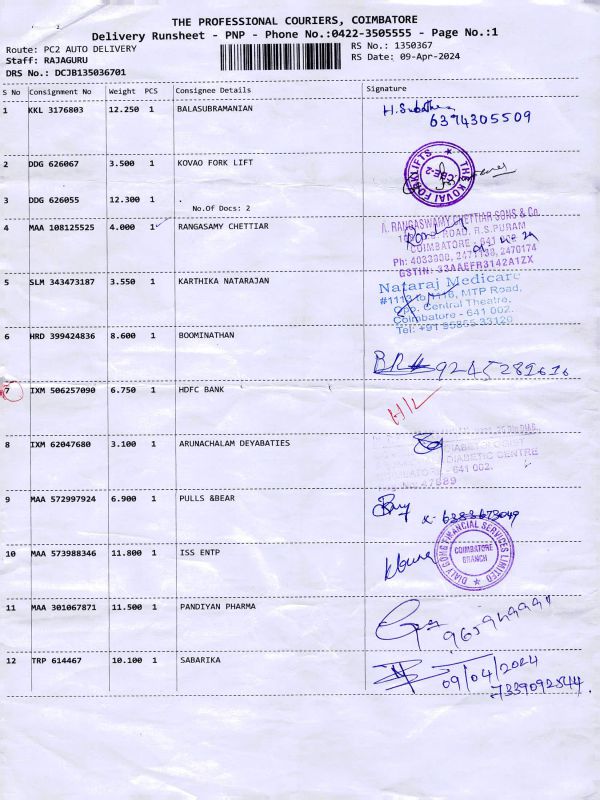 THE PROFESSIONAL COURIERS, COIMBATORE
Delivery Runsheet - PNP - Phone No.:0422-3505555 - Page No.:1
Route: PC2 AUTO DELIVERY
RS No.: 1350367
Staff: RAJAGURU
RS Date: 09-Apr-2024
DRS No.: DCJB135036701
S No Consignment No Weight PCS Consignee Details Signature
1 KKL 3176803 12.250 1 BALASUBRAMANIAN
6374305509
2 DDG 626067 3.500 1 KOVAO FORK LIFT
THE KOVAI FORKLIFTS
CBE-2
3 DDG 626055 12.300 1 .
No.Of Docs: 2
4 MAA 108125525 4.000 1 RANGASAMY CHETTIAR
A. RANGASWAMY CHETTIAR SONS & Co.
ROAD, R.S.PURAM
COIMBATORE - 641 002
2470174
GSTIN: 33AAEFR3142A1ZX
5 SLM 343473187 3.550 1 KARTHIKA NATARAJAN
Nataraj Medicare
MTP Road,
Opp. Central Theatre,
Coimbatore - 641 002.
6 HRD 399424836 8.600 1 BOOMINATHAN
9245289616
7 IXM 506257090 6.750 1 HDFC BANK
8 IXM 62047680 3.100 1 ARUNACHALAM DEYABATIES
DIABETIC CENTRE
- 641 002.
9 MAA 572997924 6.900 1 PULLS &BEAR
10 MAA 573988346 11.800 1 ISS ENTP
FINANCIAL SERVICES LIMITED
COIMBATORE
BRANCH
11 MAA 301067871 11.500 1 PANDIYAN PHARMA
12 TRP 614467 10.100 1 SABARIKA
09/04/2024
7339092544